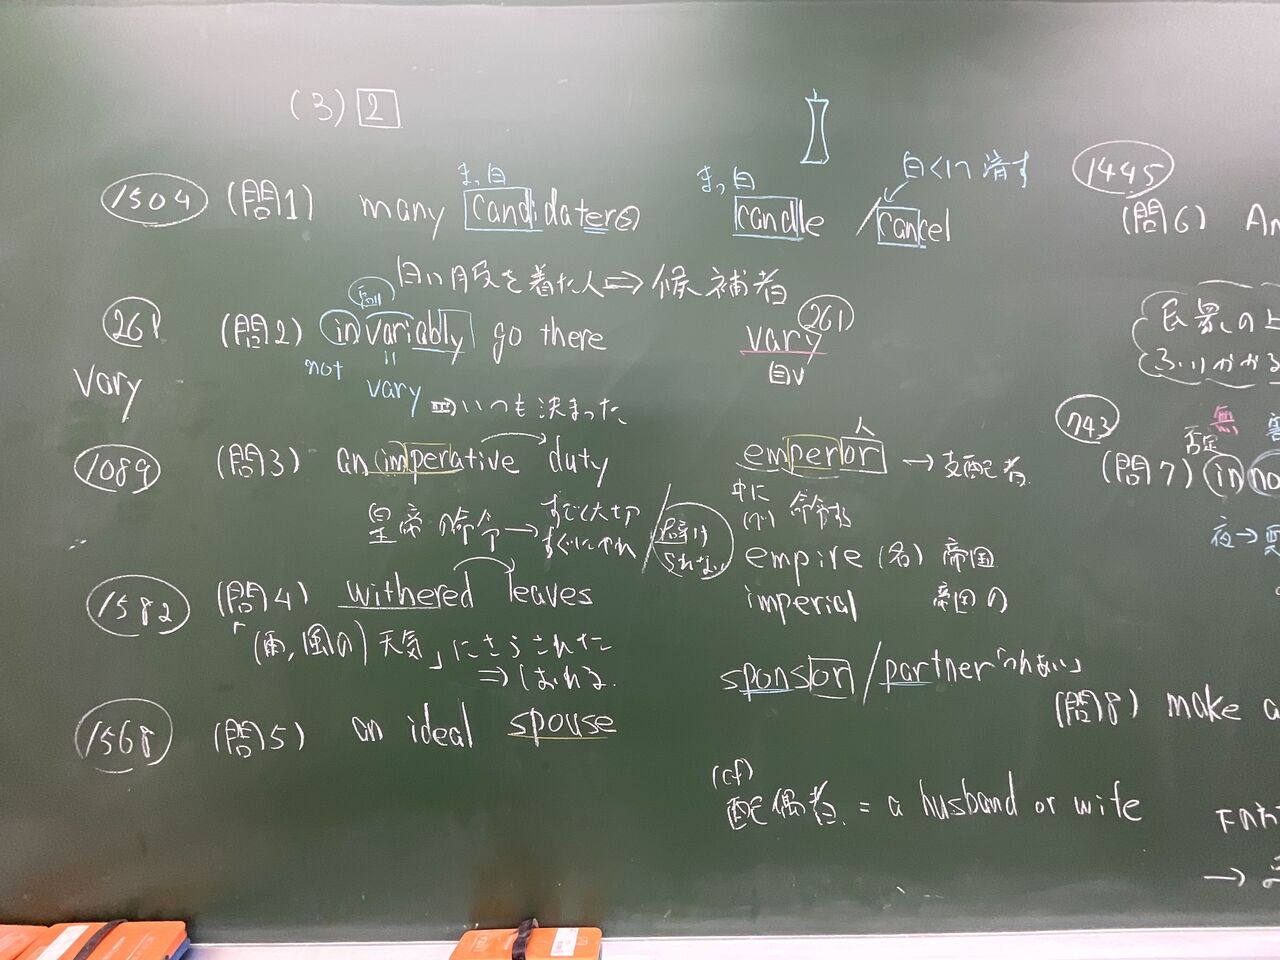 (3) 2
1504 (問1) many candidater(s)
まっ白
白い服を着た人⇒候補者
まっ白
candle / cancel
白くい消す
261 (問2) invariably go there
副
not
vary ⇒いつも決まった
vary
vary 261
自V
1089 (問3) an imperative duty
皇帝の命令→すごく大切
すぐにやれ
/避けられない
emperor → 支配者
人
中に
命令する
empire (名) 帝国
imperial 帝国の
1582 (問4) withered leaves
「(雨,風の)天気」にさらされた
⇒しおれる.
1568 (問5) an ideal spouse
sponsor / partner「つれあい」
(cf)
配偶者. = a husband or wife
1445
(問6) An
743
否定
無
(問7) in no
夜→
(問8) make a